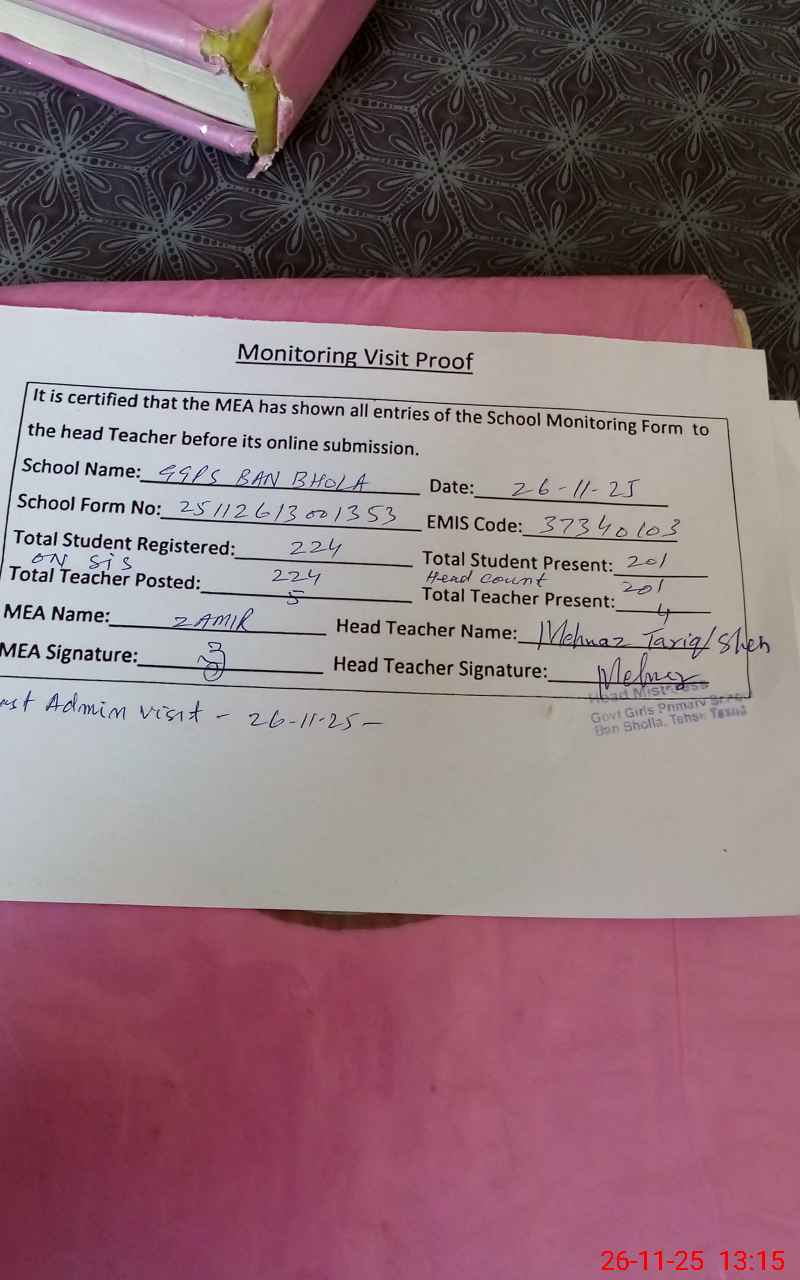 Monitoring Visit Proof
It is certified that the MEA has shown all entries of the School Monitoring Form to
the head Teacher before its online submission.
School Name: GGPS BAN BHOLA Date: 26-11-25
School Form No: 2511261300 1353 EMIS Code: 37340103
Total Student Registered: 224 Total Student Present: 201
ON SIS 224 Head count 201
Total Teacher Posted: 5 Total Teacher Present: 4
MEA Name: ZAMIR Head Teacher Name: Mehnaz Tariq/Sheh
MEA Signature: Head Teacher Signature: Mehnaz
Head Mistress
Govt Girls Primary
Ban Sholla, Tehsil Taxila
Admin visit - 26-11-25-
26-11-25 13:15